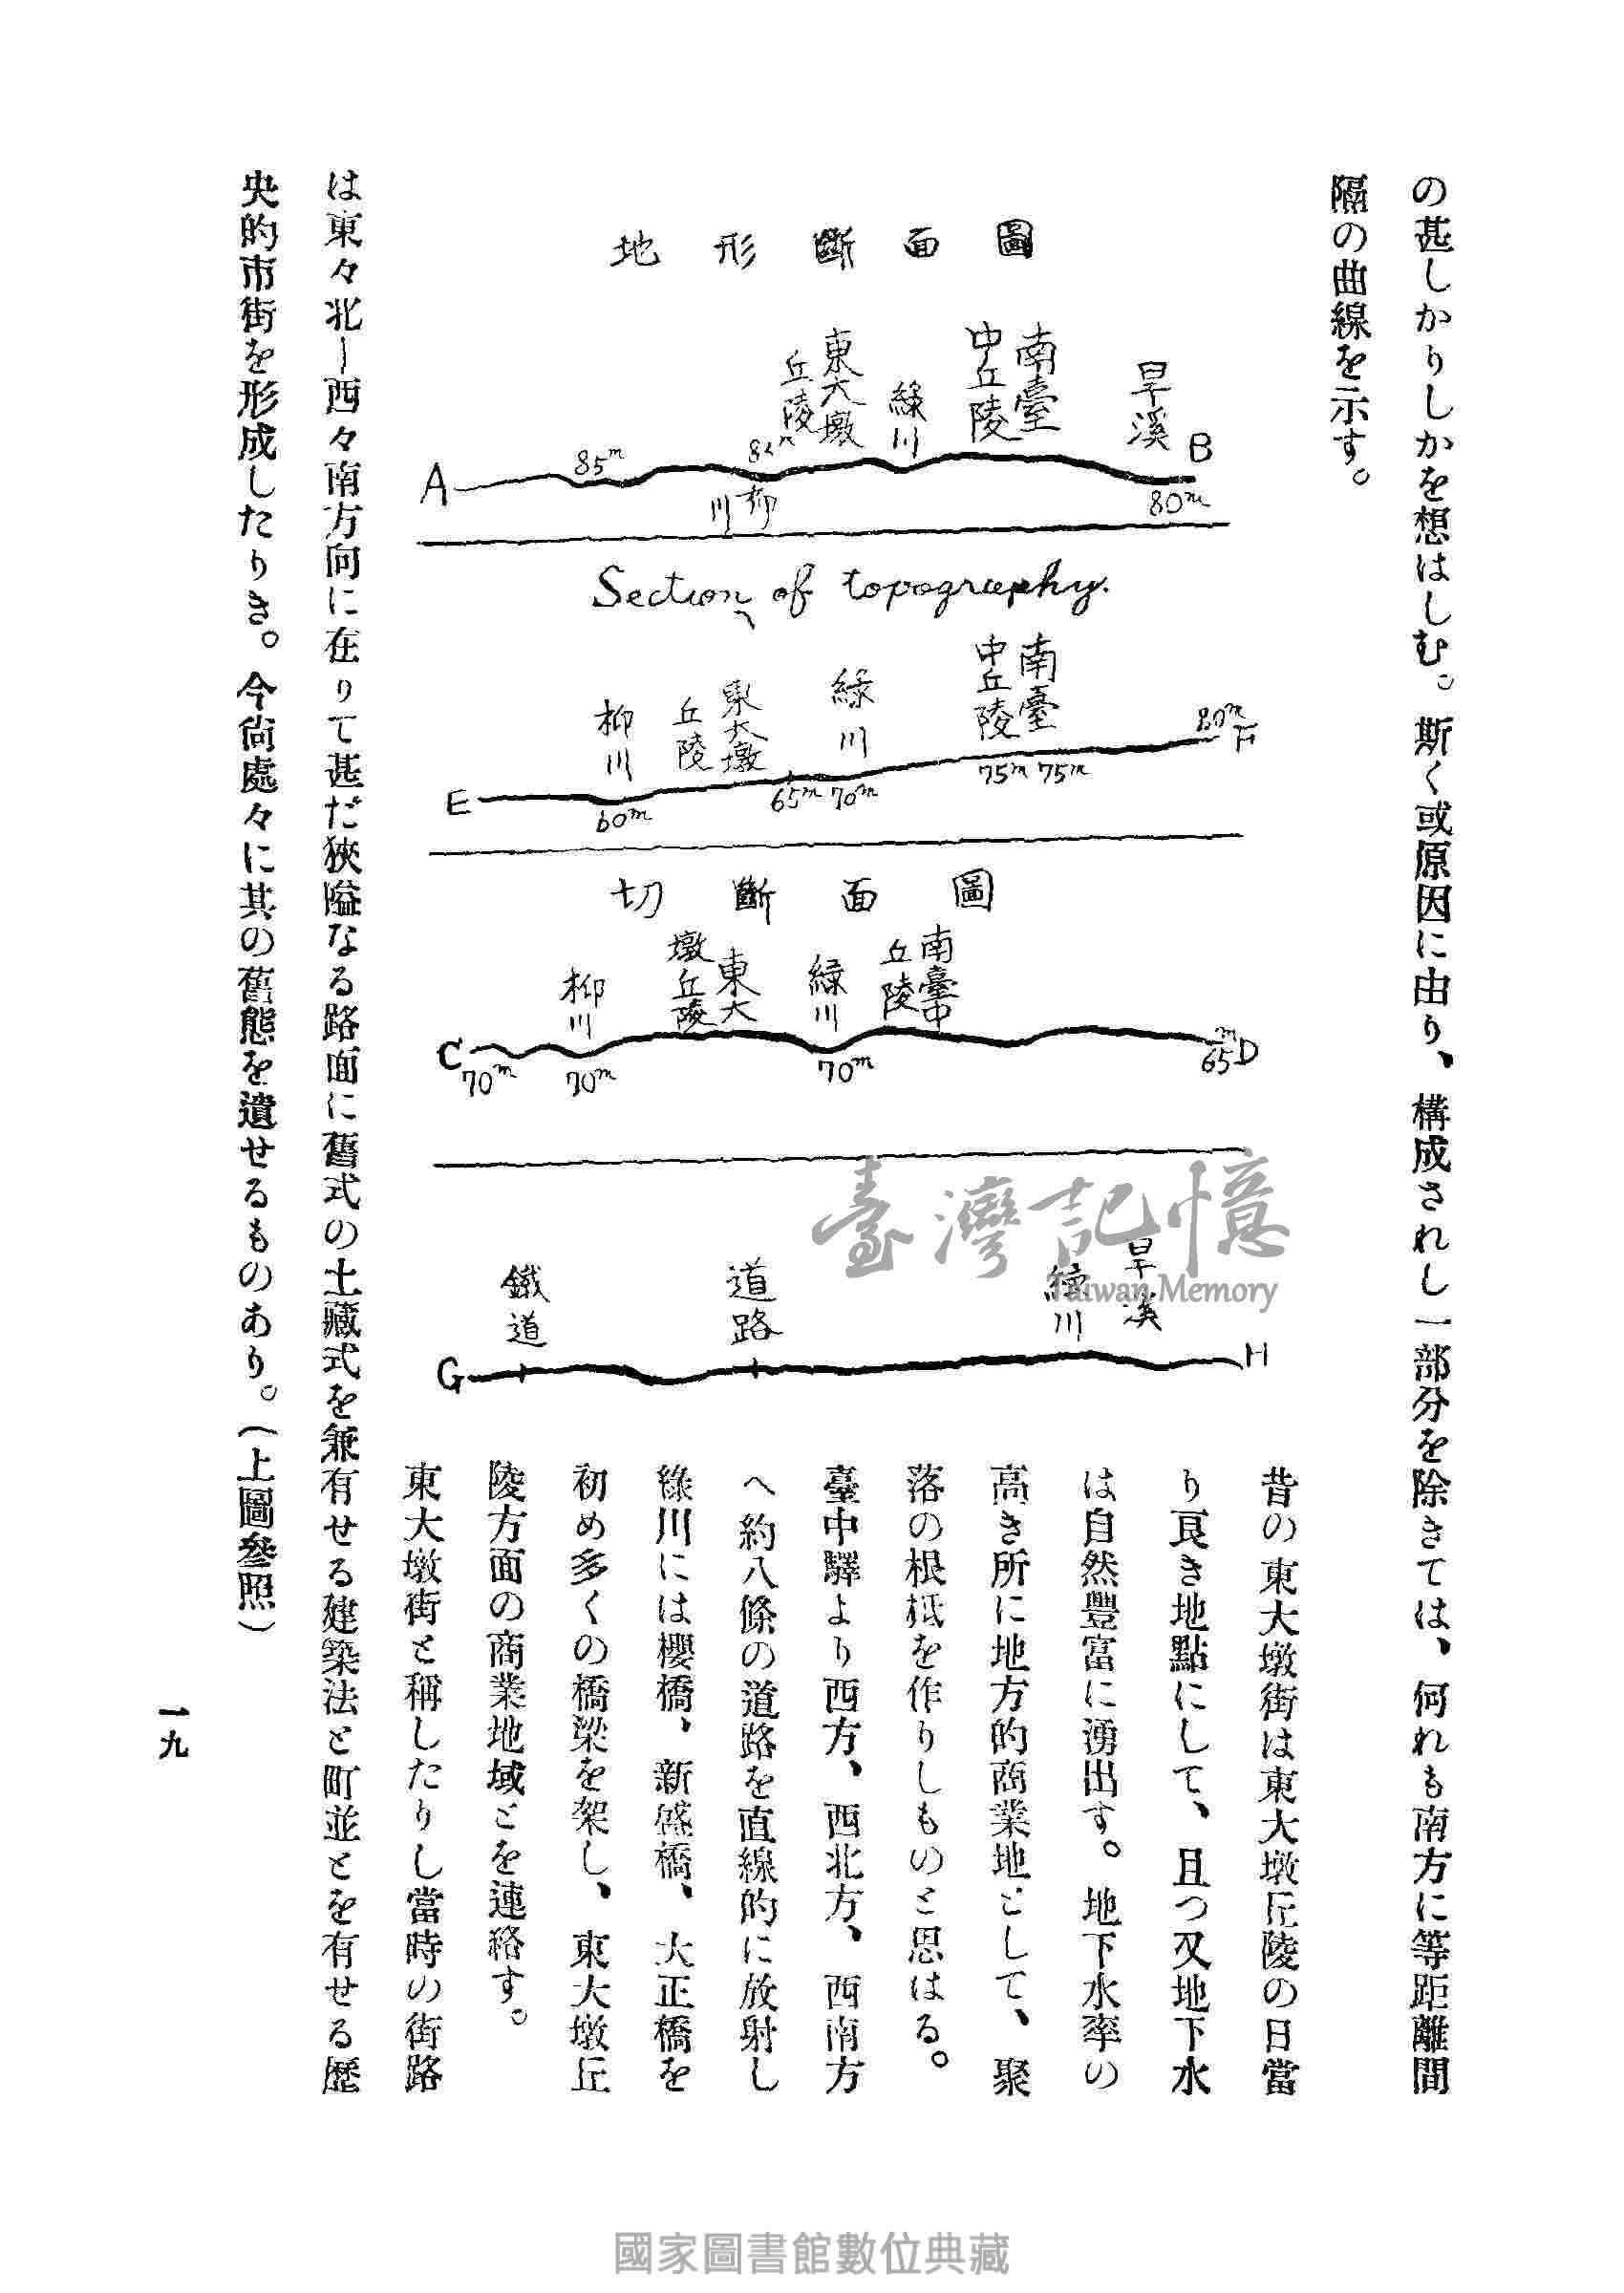 の甚しかりしかを想はしむ。斯く或原因に由り、構成されし一部分を除きては、何れも南方に等距離間
隔の曲線を示す。
地形斷面圖
A
85m
柳川
東大墩
丘陵
綠川
南臺
中丘陵
旱溪
B
80m
Section of topography.
E
柳川
60m
東大墩
丘陵
65m
綠川
70m
南臺
中丘陵
75m
75m
80m
F
切斷面圖
C
70m
柳川
70m
東大
墩丘陵
綠川
70m
南臺中
丘陵
65m
D
鐵道
道路
綠川
旱溪
G
H
臺灣記憶
Taiwan Memory
昔の東大墩街は東大墩丘陵の日當
り良き地點にして、且つ又地下水
は自然豐富に湧出す。地下水率の
高き所に地方的商業地として、聚
落の根柢を作りしものと思はる。
臺中驛より西方、西北方、西南方
へ約八條の道路を直線的に放射し
綠川には櫻橋、新盛橋、大正橋を
初め多くの橋梁を架し、東大墩丘
陵方面の商業地域とを連絡す。
東大墩街と稱したりし當時の街路
は東々北ー西々南方向に在りて甚だ狹隘なる路面に舊式の土藏式を兼有せる建築法と町並とを有せる歷
央的市街を形成したりき。今尙處々に其の舊態を遺せるものあり。(上圖參照)
一九
國家圖書館數位典藏